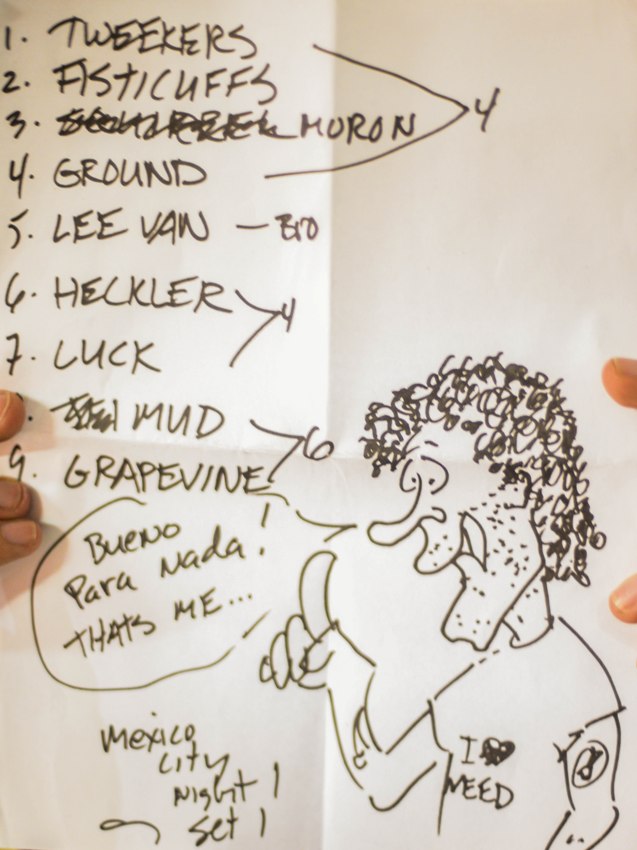 1. TWEEKERS
2. FISTICUFFS
3. MORON
4. GROUND
4
5. LEE VAN — Bro
6. HECKLER
7. LUCK
4
. MUD
9. GRAPEVINE
6
Bueno
Para Nada!
THATS ME...
Mexico
City
Night 1
Set 1
I ♥
WEED